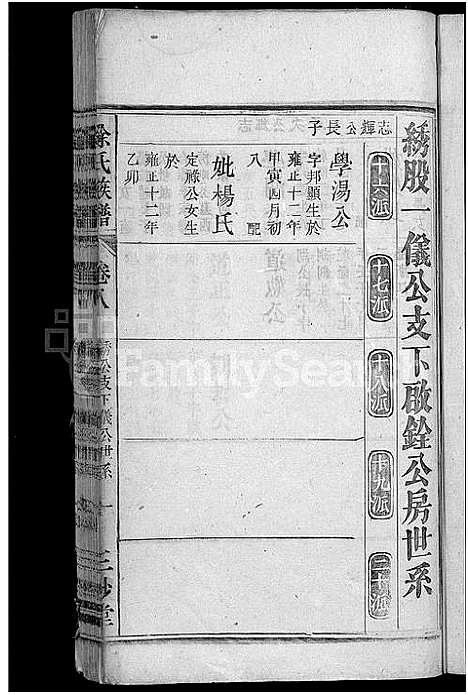 綉股一儀公支下啟銓公房世系
十六派
十七派
十八派
十九派
二十派
志輝公長子
學湯公
字邦顯生於
雍正十二年
甲寅四月初
八 配
妣楊氏
定祿公女生
於
雍正十二年
乙卯
徐氏族譜
卷八
綉公支下儀公世系
一
FamilySearch